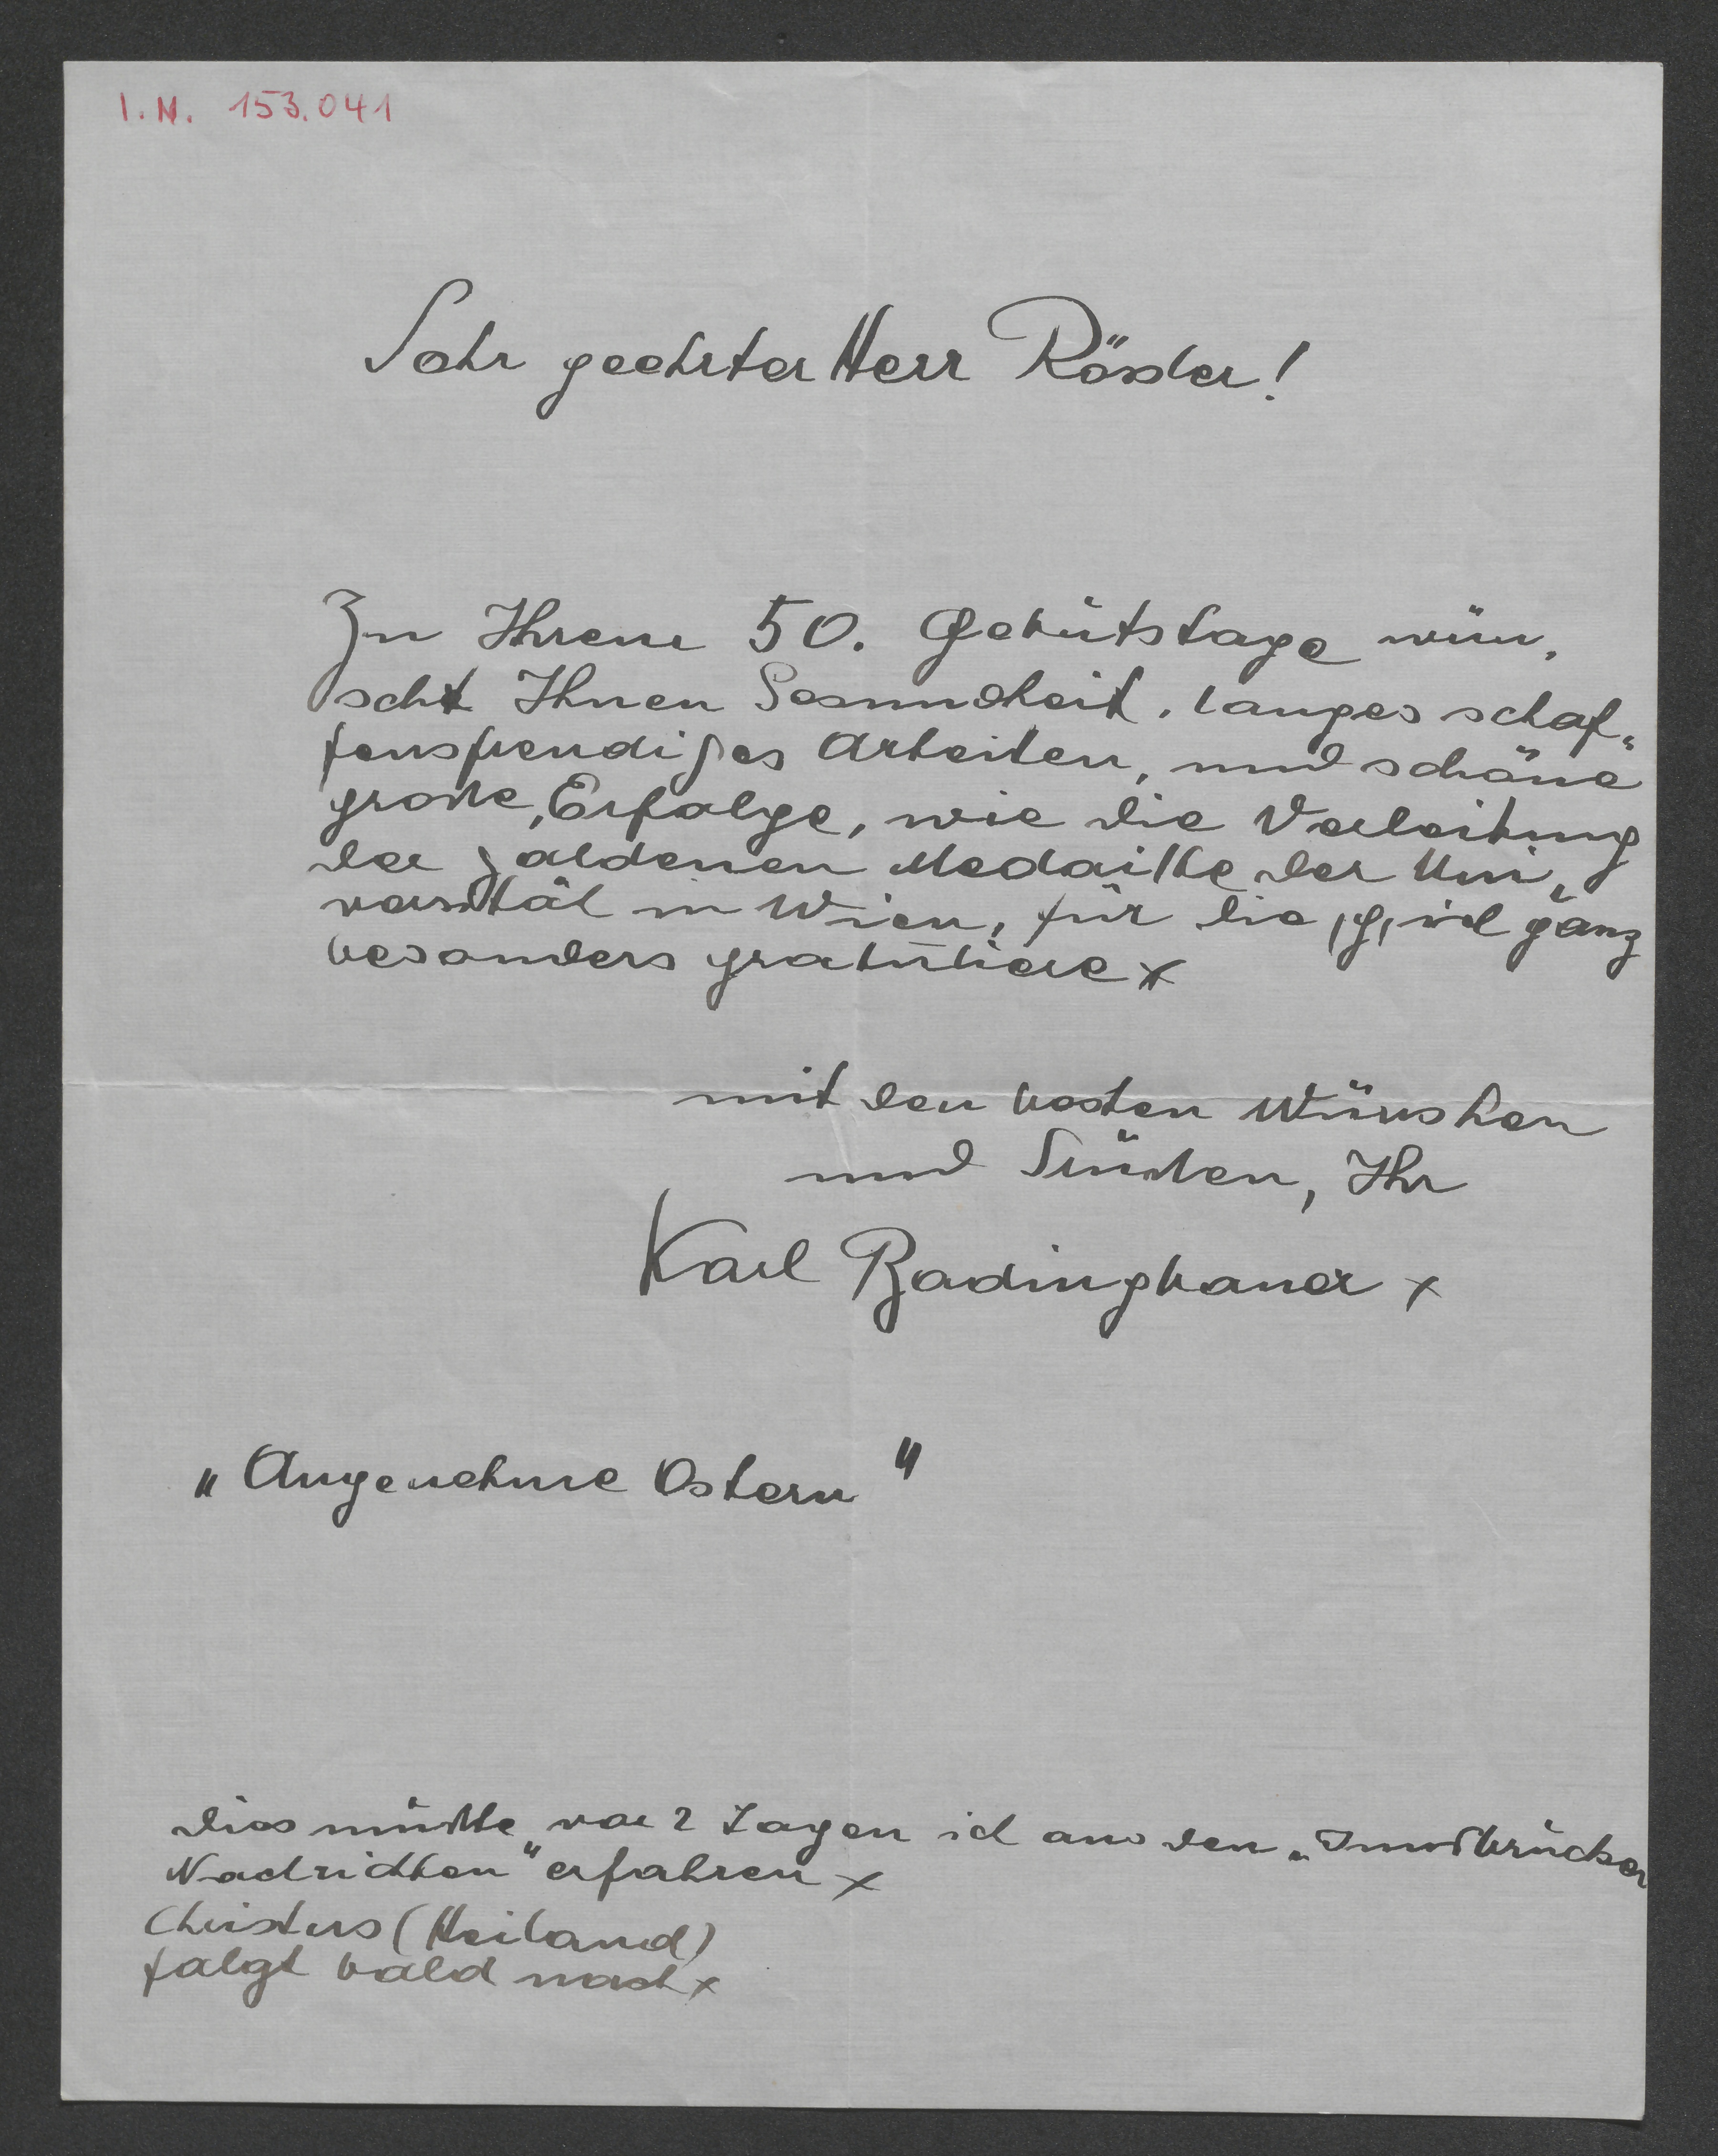 I.N. 153.041
Sehr geehrter Herr Rössler!
Zu Ihrem 50. Gebutstage wün,
scht Ihnen Gesundheit, langes schaf„
fensfreudiges Arbeiten, und schöne
große, Erfolge, wie die Verleihung
der goldenen Medaille der Uni„
versität in Wien, für die ich ganz
besonders gratuliere x
mit den besten Wünschen
und Grüßen, Ihr
Karl
„Angenehme Ostern"
Dies mußte vor 2 Tagen ich aus den „Innsbrucker
Nachrichten" erfahren x
Christus (Heiland)
folgt bald nach x